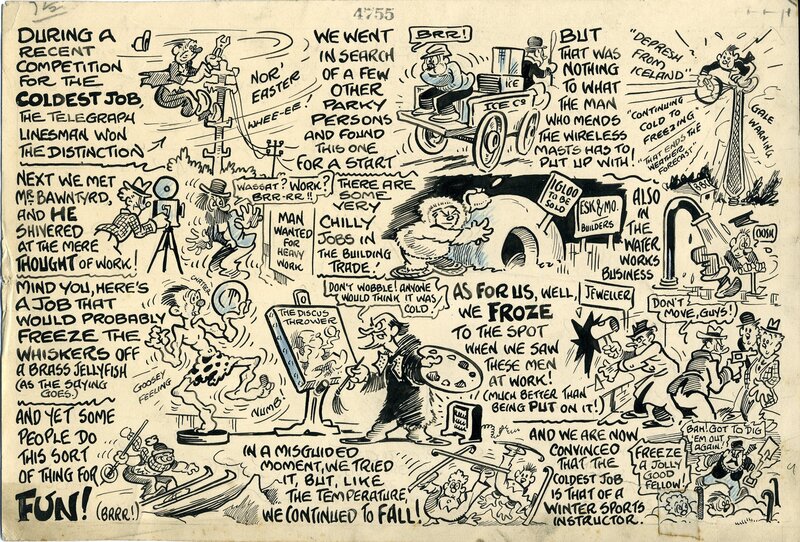 4755
DURING A
RECENT
COMPETITION
FOR THE
COLDEST JOB,
THE TELEGRAPH
LINESMAN WON
THE DISTINCTION
NOR'
EASTER
WHEE-EE!
WE WENT
IN SEARCH
OF A FEW
OTHER
PARKY
PERSONS
AND FOUND
THIS ONE
FOR A START
BRR!
ICE
ICE CO
BUT
THAT WAS
NOTHING
TO WHAT
THE MAN
WHO MENDS
THE WIRELESS
MASTS HAS TO
PUT UP WITH!
"DEPRESH
FROM
ICELAND"
"CONTINUING
COLD TO
FREEZING"
"THAT ENDS THE
WEATHER
FORECAST"
GALE
WARNING
BBC
NEXT WE MET
MR. BAWNTYRD,
AND HE
SHIVERED
AT THE MERE
THOUGHT OF WORK!
WASSAT? WORK?
BRR-RR!!
MAN
WANTED
FOR
HEAVY
WORK
THERE ARE
SOME
VERY
CHILLY
JOBS IN
THE BUILDING
TRADE!
IGLOO
TO BE
SOLD
ESK & MO.
BUILDERS
ALSO
IN
THE
WATER
WORKS
BUSINESS
OOSH
MIND YOU, HERE'S
A JOB THAT
WOULD PROBABLY
FREEZE THE
WHISKERS OFF
A BRASS JELLYFISH
(AS THE SAYING
GOES.)
GOOSEY
FEELING
NUMB.
THE DISCUS
THROWER
DON'T WOBBLE! ANYONE
WOULD THINK IT WAS
COLD
AS FOR US, WELL,
WE FROZE
TO THE SPOT
WHEN WE SAW
THESE MEN
AT WORK!
(MUCH BETTER THAN
BEING PUT ON IT!)
JEWELLER
DON'T
MOVE, GUYS!
AND YET SOME
PEOPLE DO
THIS SORT
OF THING FOR
FUN! (BRRR!)
IN A MISGUIDED
MOMENT, WE TRIED
IT, BUT, LIKE
THE TEMPERATURE,
WE CONTINUED TO FALL!
AND WE ARE NOW
CONVINCED
THAT THE
COLDEST JOB
IS THAT OF A
WINTER SPORTS
INSTRUCTOR.
BAH! GOT TO DIG
'EM OUT
AGAIN!
FREEZE
A JOLLY
GOOD
FELLOW!